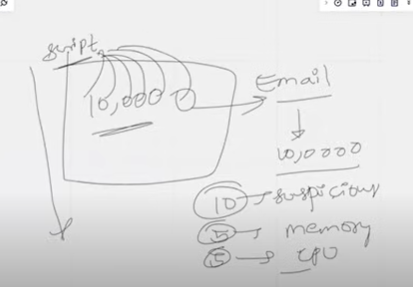 script
10,000
Email
10,0000
10 suspicious
5 memory
5 CPU